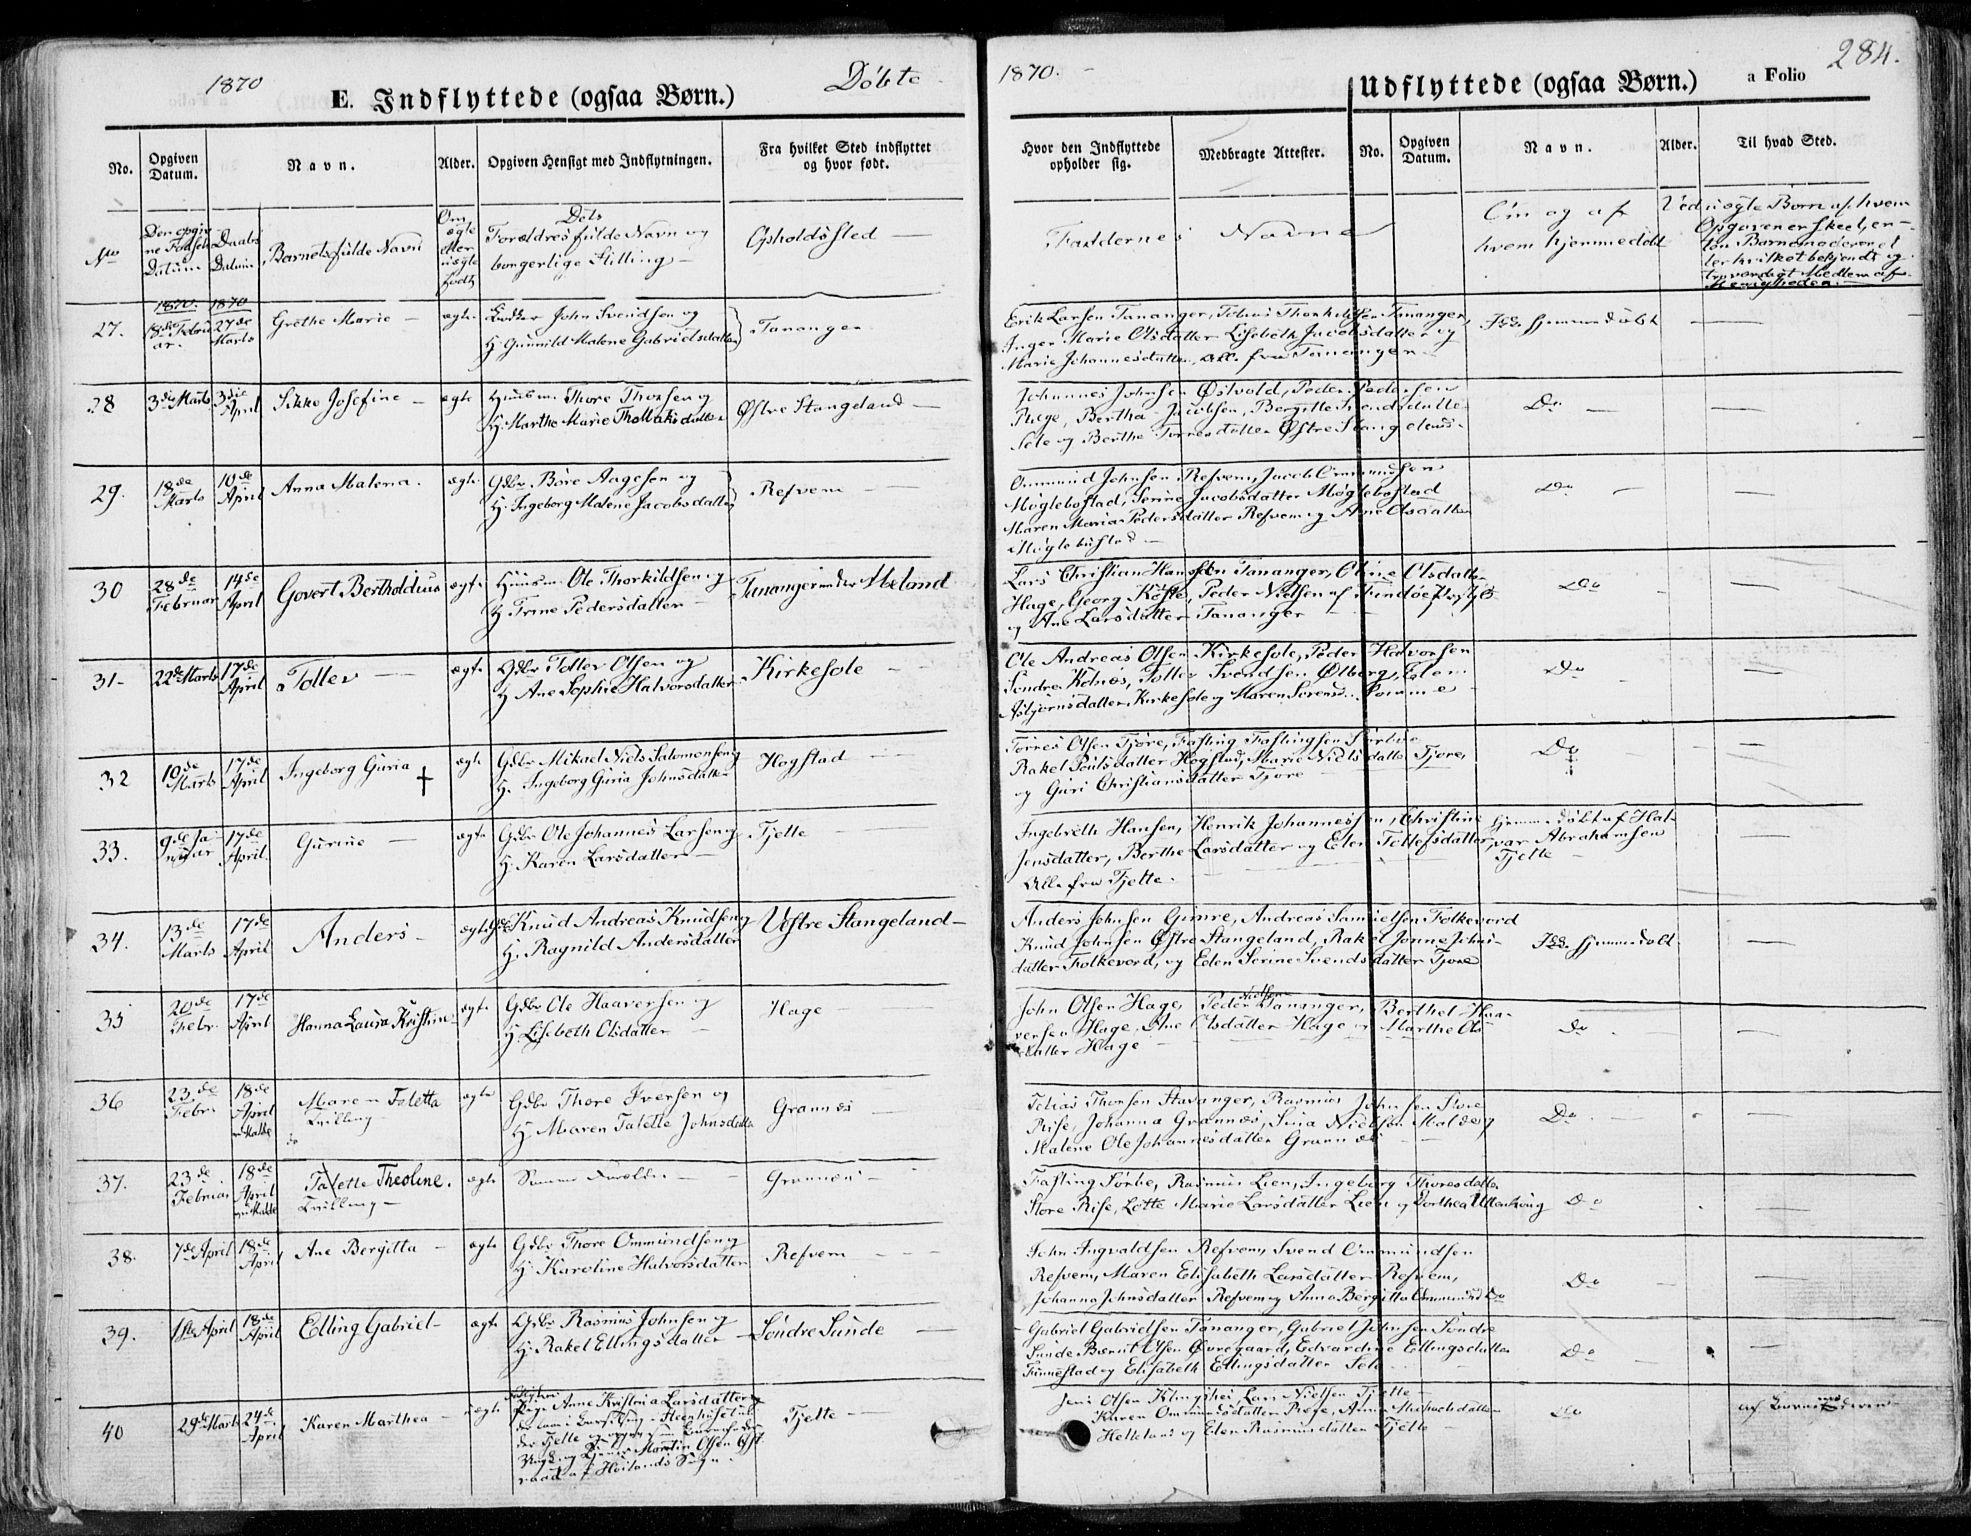 1870
E. Indflyttede (ogsaa Børn.)
Döbte
1870.
Udflyttede (ogsaa Børn.)
a Folio
284.
No.
Opgiven
Datum.
Navn.
Alder.
Opgiven Hensigt med Indflytningen.
Fra hvilket Sted indflyttet
og hvor født.
Hvor den Indflyttede
opholder sig.
Medbragte Attester.
No.
Opgiven
Datum.
Navn.
Alder.
Til hvad Sted.
No
Den opgiv
ne Födsels
Datum
Daabs
Datum
Barnets fulde Navn
Om
ægte
eller
uægte
födt
Döbs
Forældres fulde Navn og
borgerlige Stilling
Opholdssted
Faddernes Navne
Om og af
hvem hjemmedöbt
Ved uægte Börn af hvem
Opgaven er skeet, en-
ten Barnemoderen el
ler hvilket bekjendt og
troværdigt Medlem af
Menigheden.
27.
1870.
18de Febru
ar.
1870
27de
Marts
Grethe Marie
ægte
John Svendsen og
H. Gunnild Malene Gabrielsdatter
Tananger
Erik Larsen Tananger, Tobias Thorkildsen Tananger,
Inger Marie Olsdatter Lisebeth Jacobsdatter og
Marie Johannesdatter, alle fra Tananger
Ikke hjemmedöbt
28
3die Marts
3die
April
Sikke Josefine
ægte
Huusm. Thore Thorsen og
H. Marthe Marie Thollaksdatter
Østre Stangeland
Johannes Johnsen Østvold, Peder Pedersen
Rege, Bertha Jacobsen, Bergitte Svendsdatter
Sole og Berthe Torresdatter Østre Stangeland
Do
29.
18de
Marts
10de
April
Anna Malena.
ægte
Gdbr. Böre Aagesen og
H. Ingeborg Malene Jacobsdatter
Refvem
Ommund Johnsen Refvem, Jacob Ommundsen
Möglebostad, Serine Jacobsdatter Möglebostad
Maren Maria Pedersdatter Refvem og Ane Olsdatter
Möglebustad
Do
30
28de
Februar
14de
April
Govert Bertholdius
ægte
Huusm. Ole Thorkildsen og
H Trine Pedersdatter
Tananger under Meland
Lars Christian Hansen Tananger, Oline Olsdatter
Hage, Georg Köste, Peder Nielsen af
og Ane Larsdatter Tananger
Do
31.
22de Marts
17de
April
Tollev
ægte
Gdbr Tollev Olsen og
H Ane Sophie Halvorsdatter
Kirkesole
Ole Andreas Olsen Kirkesole, Peder Halvorsen
Söndre Kolnes, Tollev Svendsen Ølberg, Elen
Asbjörnsdatter Kirkesole og Maren Sörensd.
Do
32
10de
Marts
17de
April
Ingeborg Guria †
ægte
Gdbr Mikael Niels Salomonsen og
H. Ingeborg Guria Johnsdatter
Hogstad
Torres Olsen Tjöre, Fasting Fastingsen Sörbøe
Rakel Poulsdatter Hogstad, Marie Nielsdatter Tjore,
og Guri Christiansdatter Tjore
Do
33.
9de Ja
nuar
17de
April.
Gurine
ægte
Gdbr Ole Johannes Larsen og
H. Karen Larsdatter
Tjelte
Ingebreth Hansen, Henrik Johannessen, Christine
Jensdatter, Berthe Larsdatter og Elen Tollefsdatter
Alle fra Tjelte.
Hjemmedöbt af Hal-
var Abrahamsen
Tjelte
34.
13de
Marts
17de
April
Anders
ægte
Gdbr Knud Andreas Knudsen og
H. Ragnild Andersdatter
Vestre Stangeland
Anders Johnsen Gimre, Andreas Samuelsen Folkevord
Knud Johnsen Østre Stangeland, Rakel Jonne Johns-
datter Folkevord, og Elen Serine Svendsdatter Tjore
Ikke hjemmedöbt
35
20de
Febr.
17de
April
Hanna Laura Kristine
ægte
Gdbr Ole Haaversen og
H Lisebeth Olsdatter
Hage
John Olsen Hage, Peder Nielsen Tananger, Berthel Haa-
versen Hage, Ane Olsdatter Hage og Marthe Ols
datter Hage
Do
36
23de
Febr.
18de
April
Maren Taletta
Tvilling
ægte
Gdbr Thore Iversen og
H. Maren Talette Johnsdatter
Grannes
Tobias Thorsen Stavanger, Rasmus Johnsen Store
Rise, Johanna Grannes, Sina Nielsen Malde og
Malene Ole Johannesdatter Grannes
Do
37.
23de
Februar
18de
April
Talette Theoline.
Tvilling
ægte
Samme Foreldre
Grannes
Fasting Sörbe, Rasmus Lien, Ingeborg Thoresdatter
Store Rise, Lotte Marie Larsdatter Lien og Dorthea Ullenhaug
Do
38.
7de April
18de
April
Ane Bergitta
ægte
Gdbr Thore Ommundsen og
H. Karoline Halvorsdatter
Refvem
John Ingvaldsen Refvem, Svend Ommundsen
Refvem, Maren Elisabeth Larsdatter Refvem,
Johanna Johnsdatter Refvem og Anna Bergitta Ommunds Do
Do
39.
1ste April
18de
April
Elling Gabriel
ægte
Gdbr Rasmus Johnsen og
H. Rakel Ellingsdatter
Söndre Sunde
Gabriel Gabrielsen Tananger, Gabriel Johnsen Söndre
Sunde Berent Olsen Øvregaard, Edvardine Ellingsdatter
Finnestad og Elisabeth Ellingsdatter Sole
Do
40
29de Marts
24de
April
Karen Marthea
uægte
Pige Anne Kristina Larsdatter
Tjelte
Martin Olsen
af Høilands Sogn.
Tjelte
Jens Olsen Lars Nielsen Tjelte
Karen Ommundsdatter Rege, Anne
Helleland og Elen Rasmusdatter Tjelte
Do
af Barnemoderen